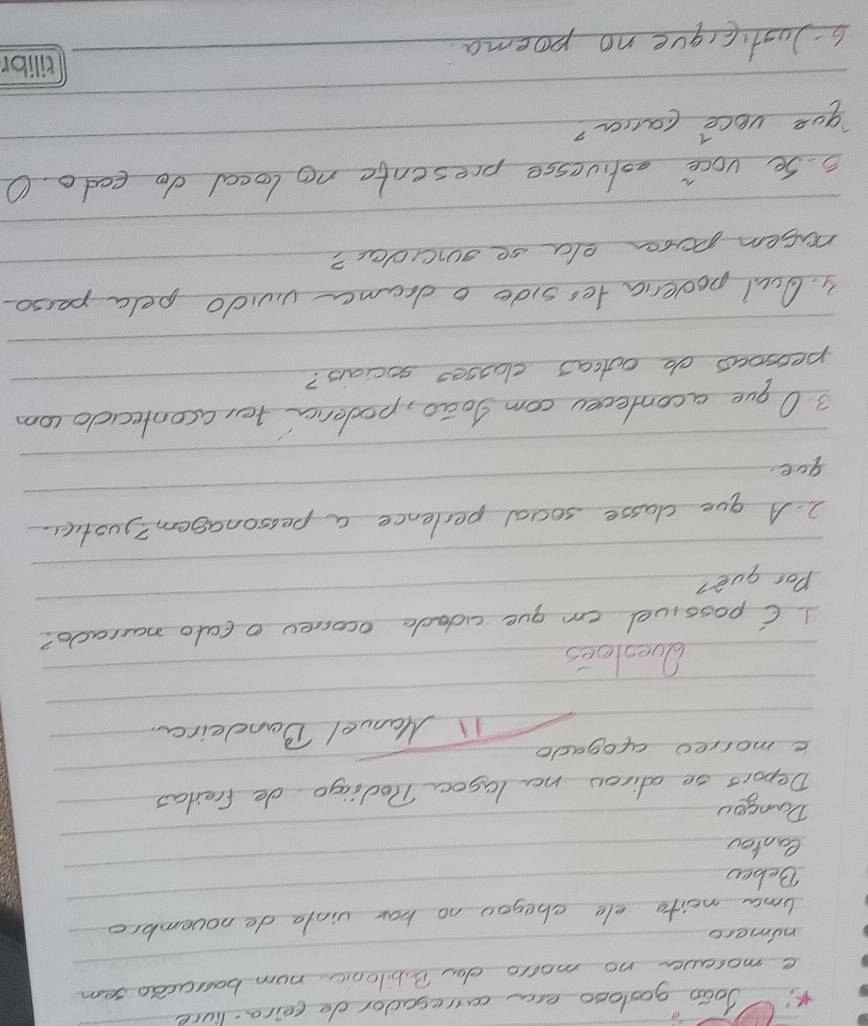 João gostoso era carregador de feira-livre
e morava no morro da Babilônia num barracão sem
número
Uma noite ele chegou no bar vinte de novembro
Bebeu
Cantou
Dançou
Depois se atirou na lagoa Rodrigo de Freitas
e morreu afogado
Manuel Bandeira.
Questões
1- É possivel em que cidade ocorreu o fato narrado?
Por quê?
2- A que classe social pertence a personagem? Justifi-
que.
3- O que aconteceu com João, poderia ter acontecido com
pessoas de outras classes sociais?
4. Qual poderia ter sido o drama vivido pela perso-
nagem para ela se suicidar?
5- Se você estivesse presente no local do fato. O
que você faria?
6- Justifique no poema.
tilibr